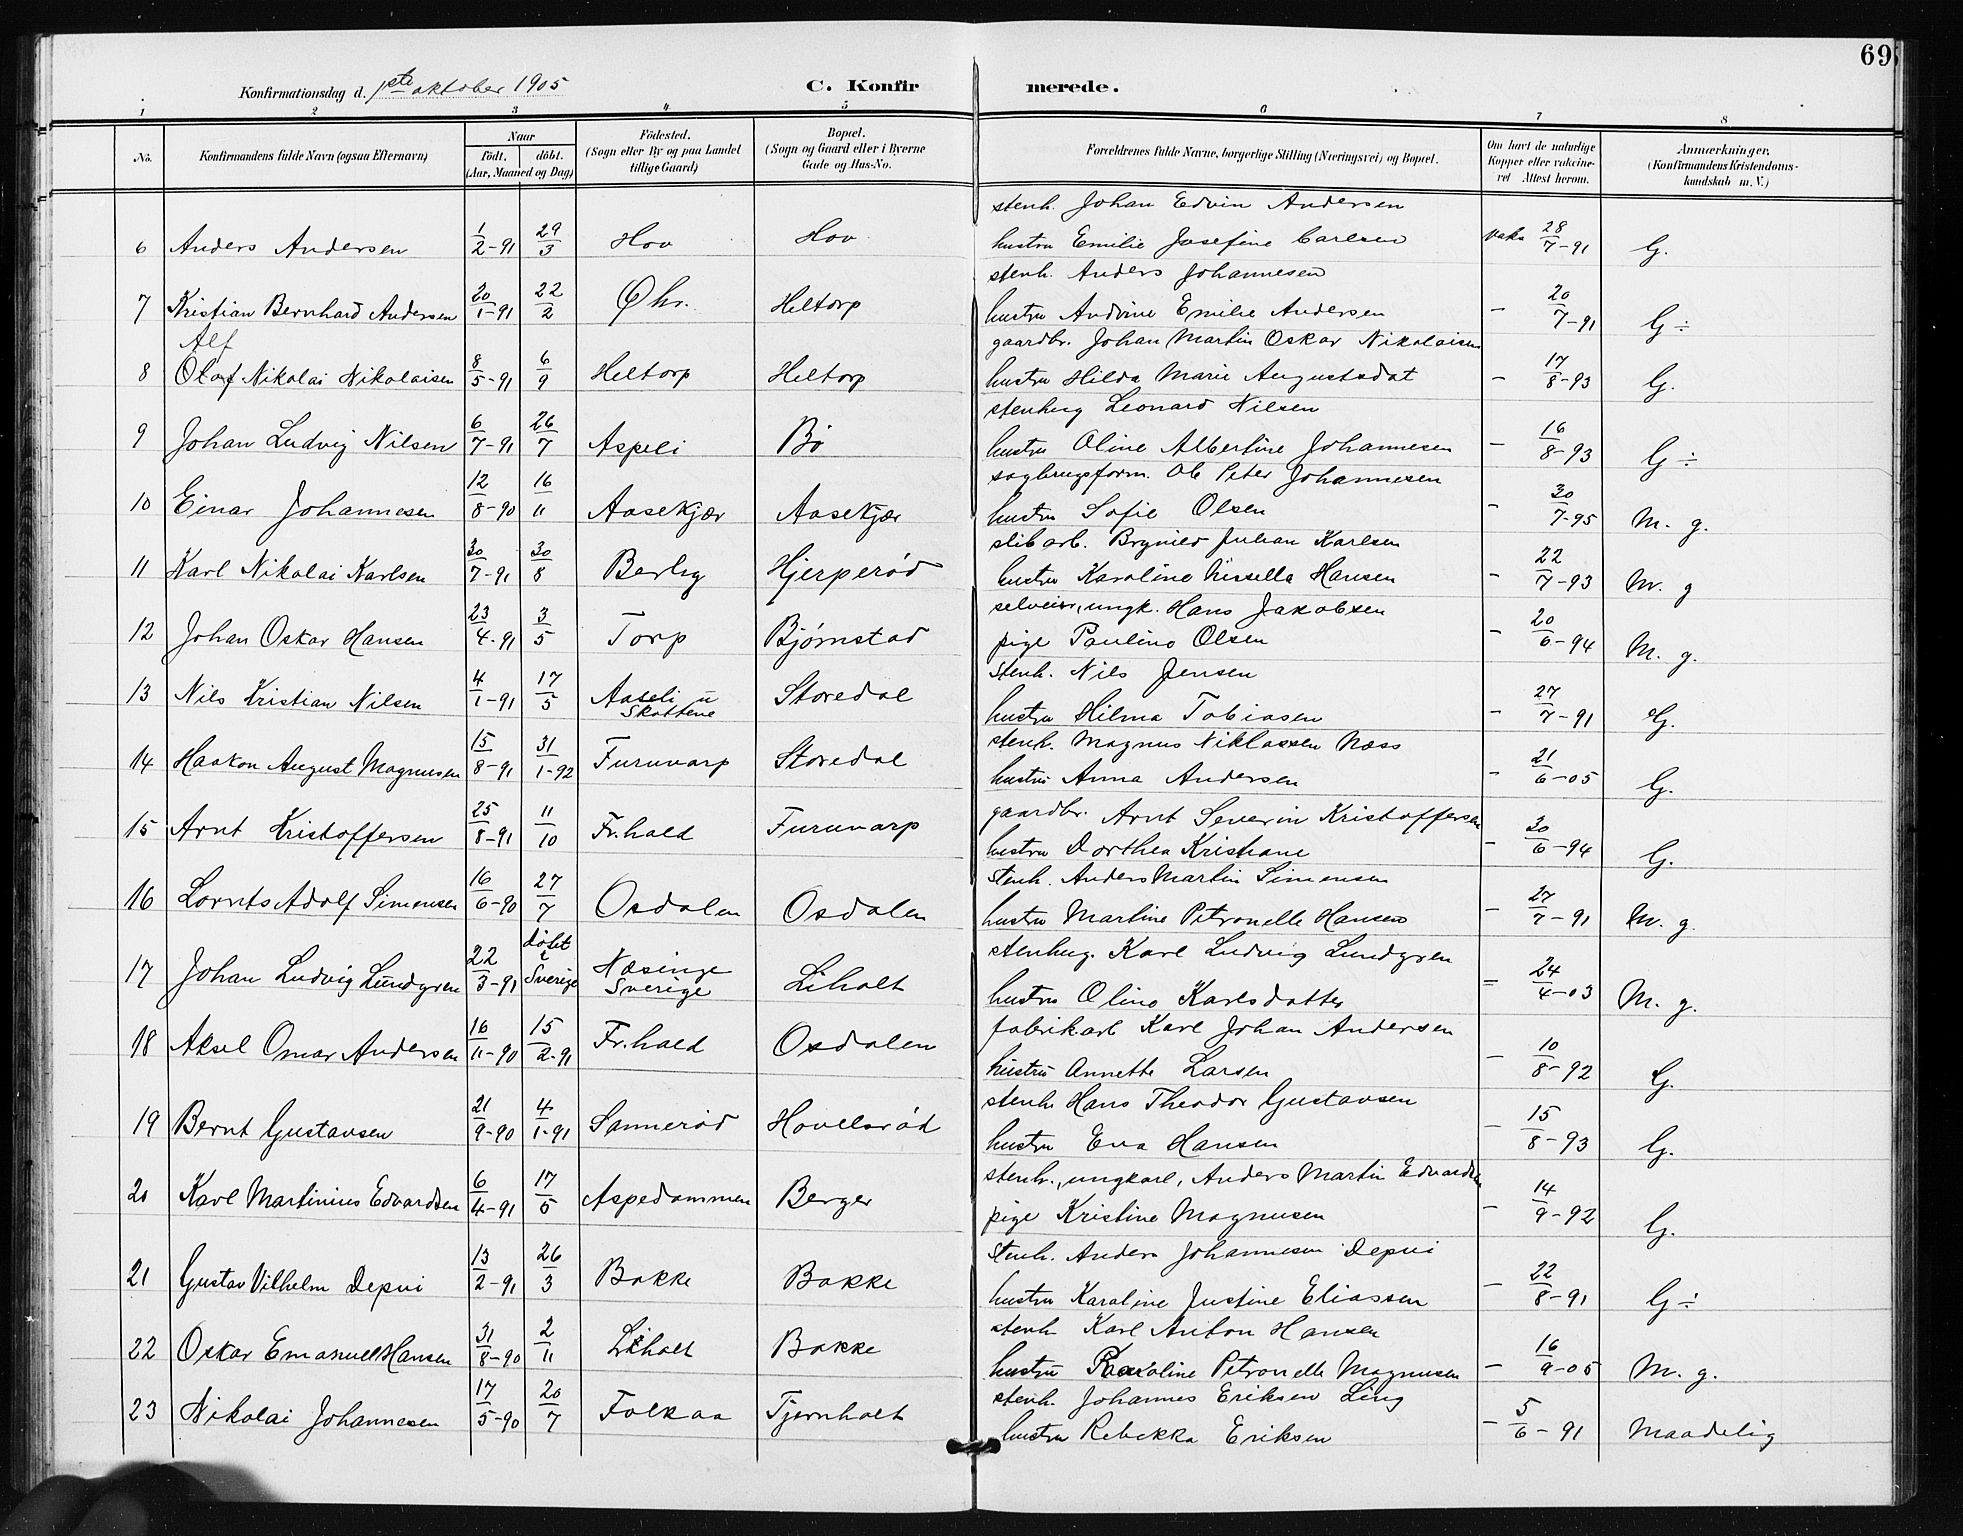 69
Konfirmationsdag d. 1ste oktober 1905 C. Konfir merede.
1 2 3 4 5 6 7 8
No. Konfirmandens fulde Navn (ogsaa Efternavn) Naar Födt. döbt. (Aar, Maaned og Dag) Födested. (Sogn eller By og paa Landet tillige Gaard) Bopæl. (Sogn og Gaard eller i Byerne Gade og Hus-No. Forældrenes fulde Navne, borgerlige Stilling (Næringsvei) og Bopæl. Om havt de naturlige Kopper eller vaccineret Attest herom. Anmærkninger. (Konfirmandens Kristendomskundskab m. V.)
stenh. Johan Edvin Andersen
6 Anders Andersen 1/2-91 29/3 Hov Hov hustru Emilie Josefine Carlsen vaks 28/7-91 G.
stenh. Anders Johannesen
7 Kristian Bernhard Andersen 20/1-91 22/2 Øhr. Heltorp hustru Andrine Emilie Andersen - 20/7-91 G ÷
Alf gaardbr. Johan Martin Oskar Nikolaisen
8 Olaf Nikolai Nikolaisen 8/5-91 6/9 Heltorp Heltorp hustru Hilda Marie Augustsdat - 17/8-93 G.
stenhug Leonard Nilsen
9 Johan Ludvig Nilsen 6/7-91 26/7 Aspeli Bö hustru Oline Albertine Johannesen - 16/8-93 G ÷
sagbrugsform. Ole Peter Johannesen
10 Einar Johannesen 12/8-90 16/11 Aasekjær Aasekjær hustru Sofie Olsen - 30/7-95 M. g.
slibarb. Brynild Julian Karlsen
11 Karl Nikolai Karlsen 30/7-91 30/8 Berby Hjerperød hustru Karoline Hansen - 22/7-93 M. g
selveier, ungk. Hans Jakobsen
12 Johan Oskar Hansen 23/4-91 3/5 Torp Bjørnstad pige Pauline Olsen - 20/6-94 M. g.
stenh. Nils Jensen
13 Nils Kristian Nilsen 4/1-91 17/5 Aaseli u Skottene Storedal hustru Hilma Tobiasen - 27/7-91 G.
stenh. Magnus Niklassen Næss
14 Haakon August Magnusen 15/8-91 31/1-92 Furuvarp Storedal hustru Anna Andersen - 21/6-05 G.
gaardbr. Arnt Severin Kristoffersen
15 Arnt Kristoffersen 25/8-91 11/10 Fr.hald Furuvarp hustru Dorthea Kristiane - 30/6-94 G.
stenh. Anders Martin Simensen
16 Lornts Adolf Simensen 16/6-90 27/7 Osdalen Osdalen hustru Martine Petronelle Hansen - 27/7-91 M. g.
stenhug. Karl Ludvig Lundgren
17 Johan Ludvig Lundgren 22/3-91 døbt i Sverige Næsinge Sverige Liholt hustru Oline Karlsdatter - 24/4-03 M. g.
fabrikarb Karl Johan Andersen
18 Aksel Omar Andersen 16/11-90 15/2-91 Fr.hald Osdalen hustru Annette Larsen - 10/8-92 G.
stenh. Hans Theodor Gustavsen
19 Bernt Gustavsen 21/9-90 4/1-91 Sannerød Hovelsrød hustru Eva Hansen - 15/8-93 G.
stenh., ungkarl, Anders Martin Edvardsen
20 Karl Martinius Edvardsen 6/4-91 17/5 Aspedammen Berger pige Kristine Magnusen - 14/9-92 G.
stenh. Anders Johannesen Depui
21 Gustav Vilhelm Depui 13/2-91 26/3 Bakke Bakke hustru Karoline Justine Eliassen - 22/8-91 G ÷
stenh Karl Anton Hansen
22 Oskar Emanuel Hansen 31/8-90 2/11 Liholt Bakke hustru Karoline Petronelle Magnusen - 16/9-05 M. g.
stenh. Johannes Eriksen Ling
23 Nikolai Johannesen 17/5-90 20/7 Folkaa Tjernholt hustru Rebekka Eriksen - 5/6-91 Maadelig